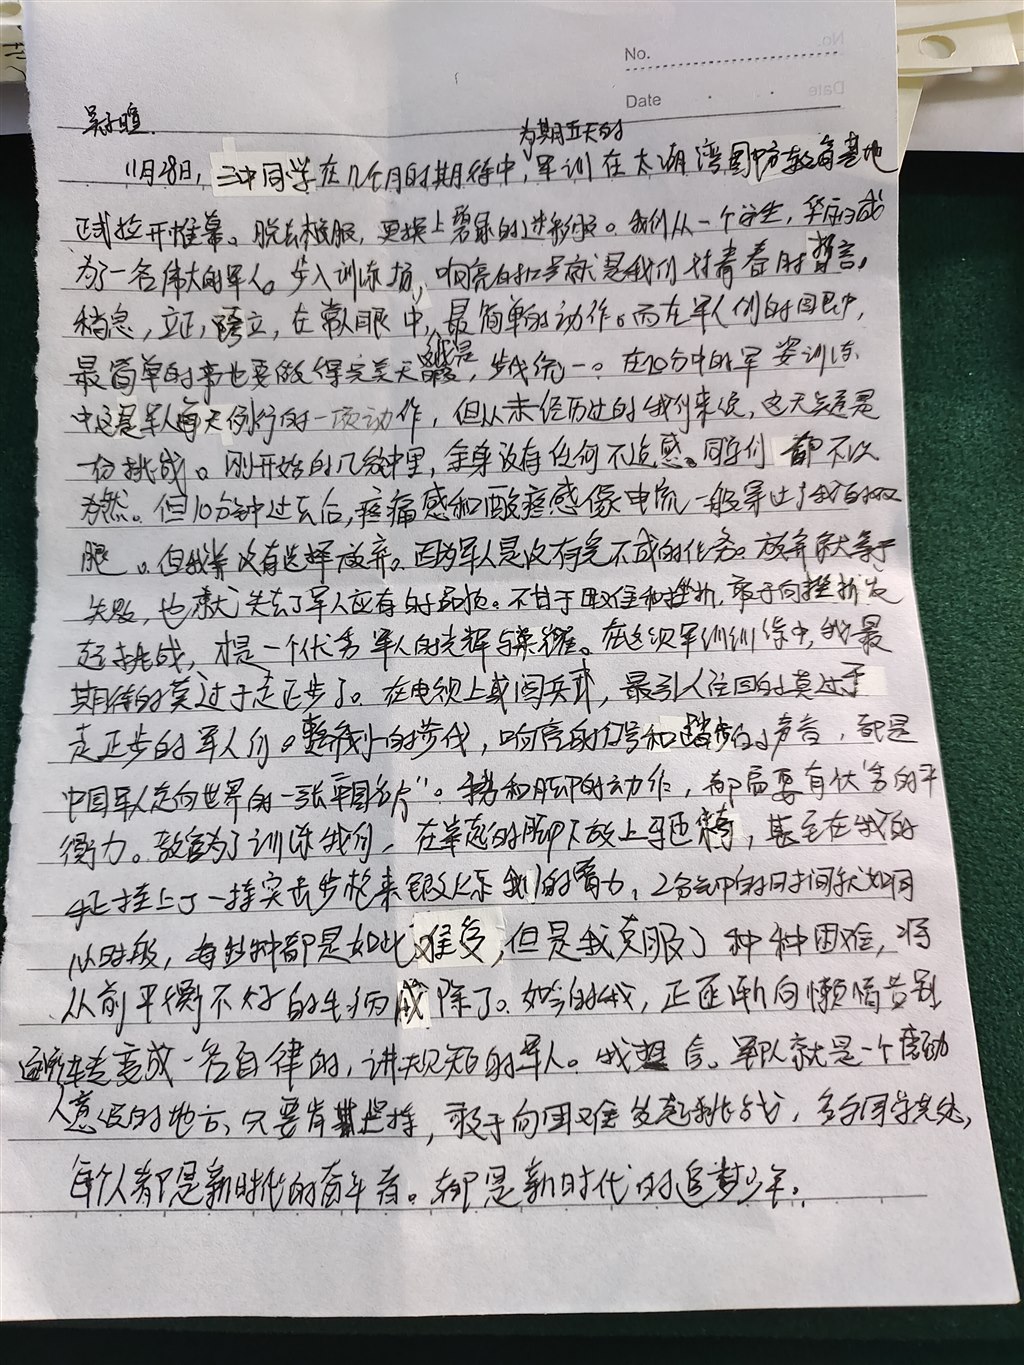 No.
Date
为期五天的
11月28日,三中同学在几个月的期待中,军训在太湖湾国防教育基地
正式拉开帷幕。脱去校服,更换上碧绿的迷彩服。我们从一个学生,华丽成
为了一名伟大的军人。步入训练场,响亮的口号就是我们对青春的誓言。
稍息,立正,跨立,在常人眼中,最简单的动作。而在军人们的眼中,
最简单的事也要做得完美无缺,步伐统一。在10分钟的军姿训练
中这是军人每天例行的一项动作,但从未经历过的我们来说,这无疑是
一份挑战。刚开始的几分钟里,全身没有任何不适感。同学们都不以
为然。但10分钟过去后,疼痛感和酸疼感像电流一般穿过了我的双
腿。但我并没有选择放弃。因为军人是没有完不成的任务。放弃就等于
失败,也就失去了军人应有的品质。不甘于困难和挫折,敢于向挫折发
起挑战,才是一个优秀军人的光辉与荣耀。在这次军训训练中,我最
期待的莫过于走正步了。在电视上或阅兵式,最引人注目的莫过于
走正步的军人们。整齐划一的步伐,响亮的口号和踏步的声音,都是
中国军人走向世界的一张"国名片"。和脚的动作,都需要有优秀的平
衡力。教官为了训练我们,在举起的脚下放上马扎,甚至在我的
上挂上了一排突击步枪来锻炼我们的臂力,2分钟的时间就如同
小时般,每秒钟都是如此难受,但是我克服了种种困难,将
从前平衡不好的毛病戒除了。如今的我,正逐渐向懒惰告别
逐渐转变成一名自律的,讲规矩的军人。我相信。军队就是一个震动
人意的地方,只要肯坚持,敢于向困难发起挑战,多与同学共处,
每个人都是新时代的奋斗者。都是新时代的追梦少年。